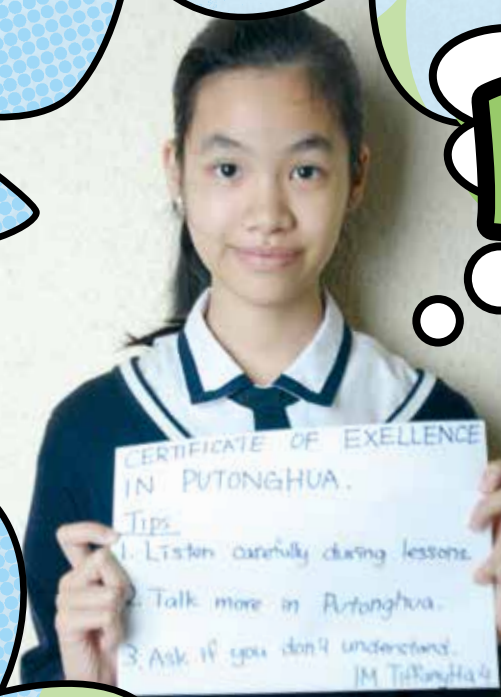 CERTIFICATE OF EXELLENCE
IN PUTONGHUA.
Tips
1. Listen carefully during lessons
2. Talk more in Putonghua.
3. Ask if you don't understand.
1M Tiffany Ha 4